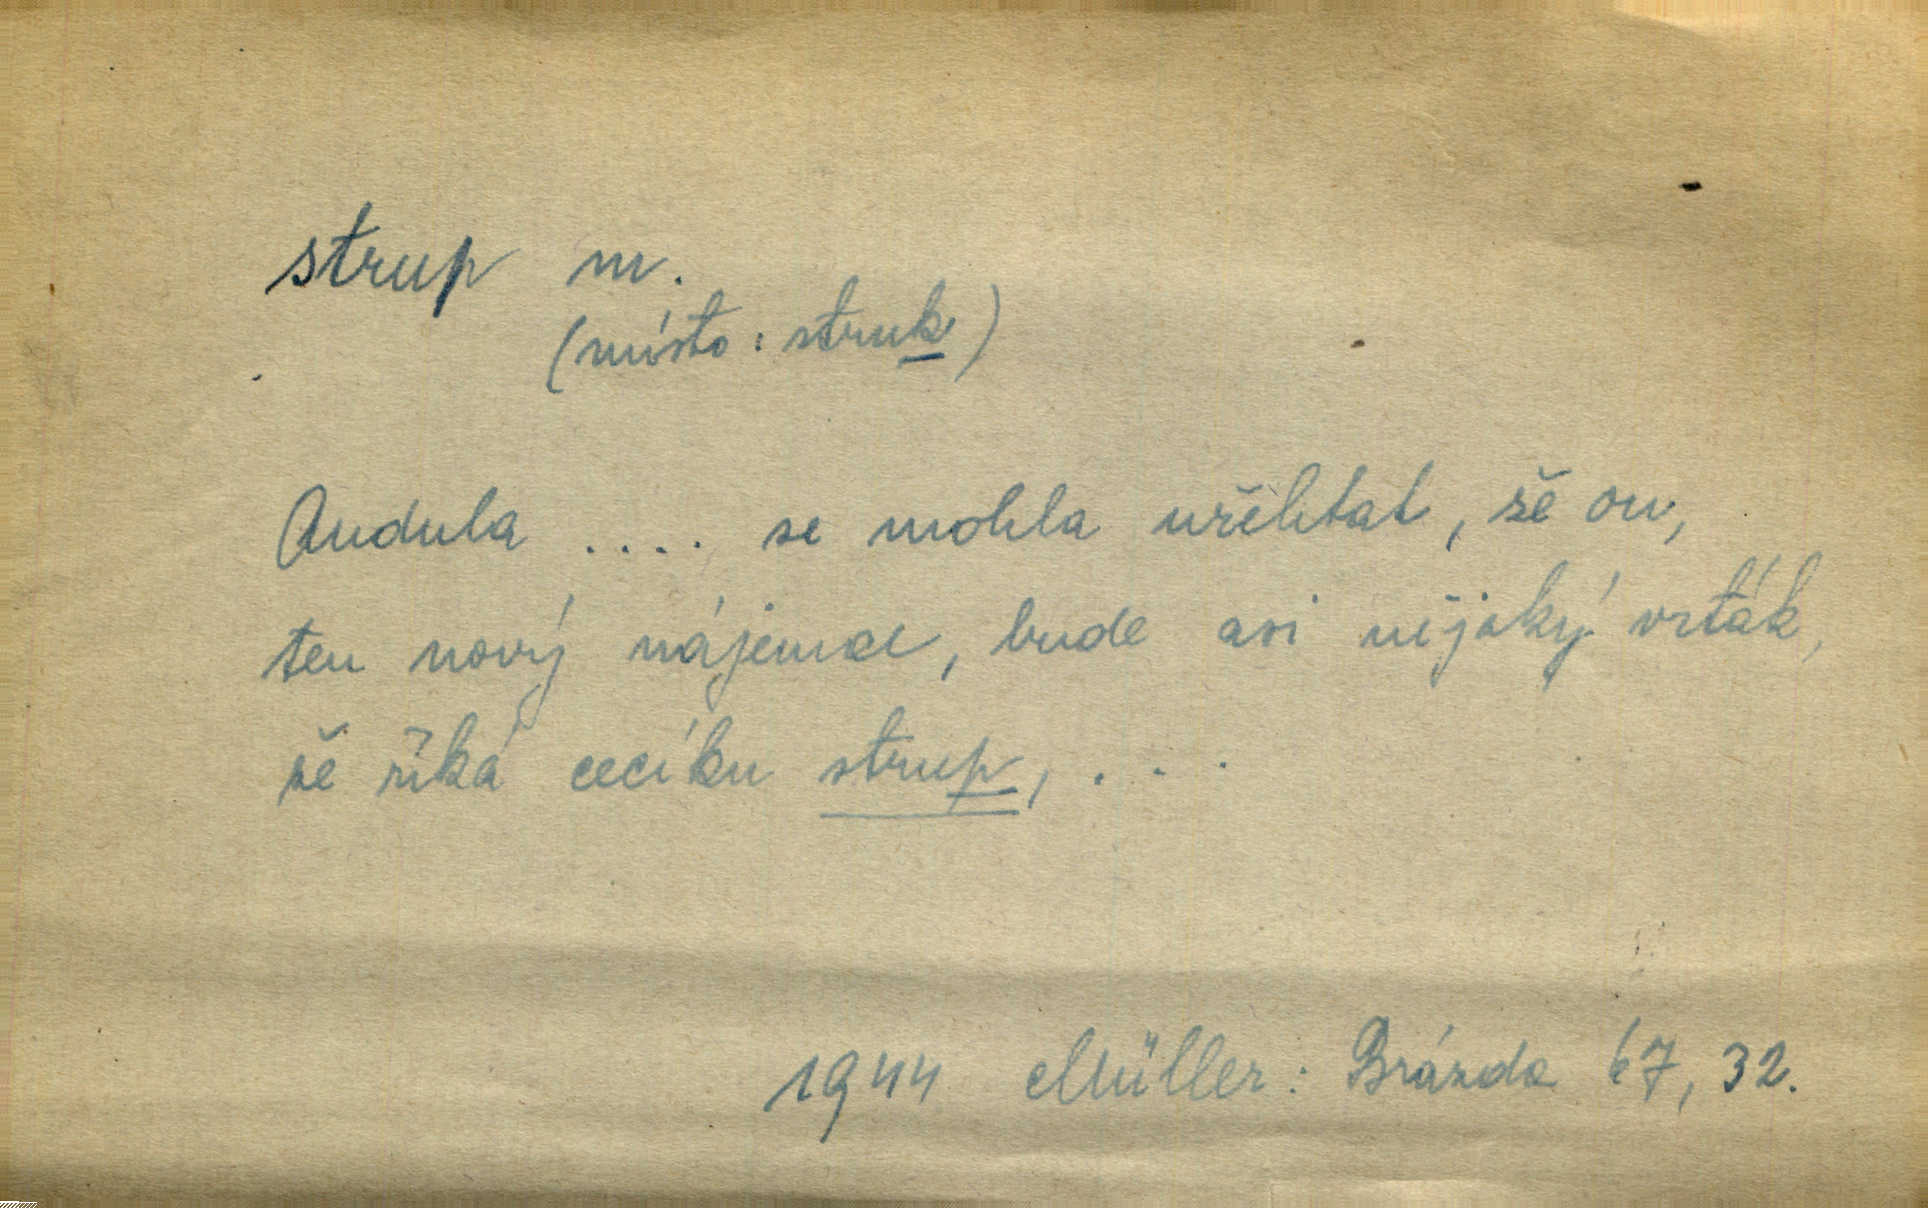 strup m.
(místo: struk)
Andula .... se mohla uřehtat, že on,
ten nový nájemce, bude asi nějaký vrták,
že říká cecíku strup, ...
1944 Müller: Brázda 67, 32.